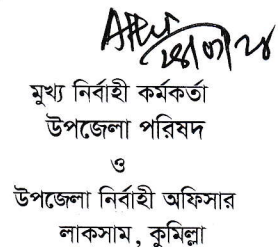 মুখ্য নির্বাহী কর্মকর্তা
উপজেলা পরিষদ
ও
উপজেলা নির্বাহী অফিসার
লাকসাম, কুমিল্লা